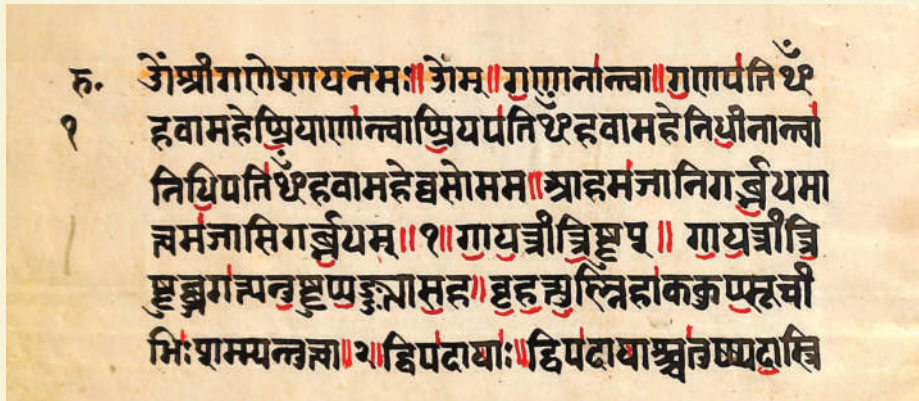 रु. ॐश्रीगणेशायनमः॥ ॐम्॥ गु॒णाना॑न्त्वा॥ ग॒णप॑तिᳪं
१ हवामहेप्प्रि॒याणा॑न्त्वाप्प्रि॒यप॑तिᳪंहवामहेनिधी॒नान्त्वा॑
निधि॒पति॑ᳪंहवामहेव्वसोमम॥ आहम॑जानिगर्ब्भ॒धमा
त्त्वम॑जासिगर्ब्भ॒धम्॥१॥ गा॒य॒त्रीत्रि॒ष्टुप्॥ गा॒य॒त्रीत्रि॒
ष्टुब्जग॑त्यनु॒ष्टुप्प॒ङ्क्त्यास॒ह॥ बृ॒ह॒त्त्यु॒ष्ष्णिहा॑क॒कुप्प्सू॒ची
भिः॑शम्म्यन्तुत्त्वा॥२॥ द्विप॑दा॒याः॑॥ द्विप॑दा॒याश्च्चतु॑ष्ष्पदा॒स्त्रि